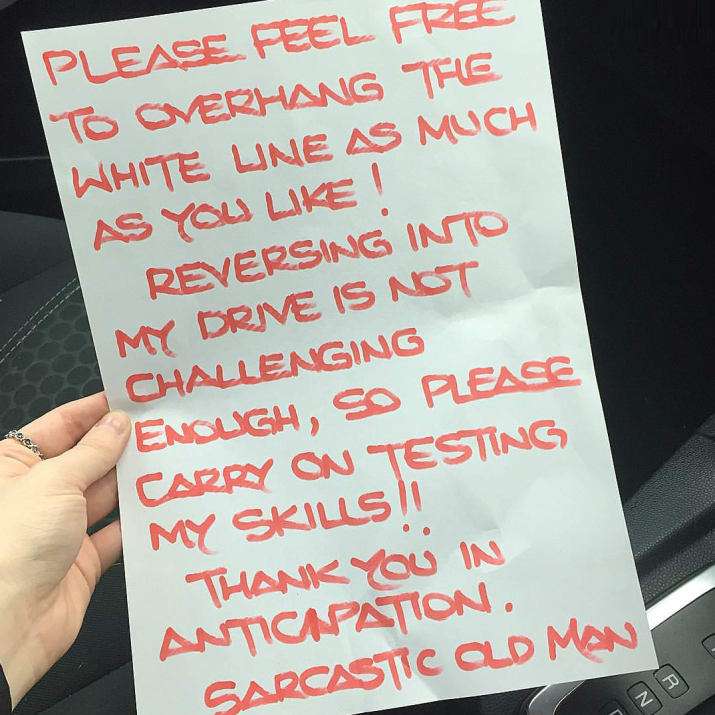 PLEASE FEEL FREE
TO OVERHANG THE
WHITE LINE AS MUCH
AS YOU LIKE!
REVERSING INTO
MY DRIVE IS NOT
CHALLENGING
ENOUGH, SO PLEASE
CARRY ON TESTING
MY SKILLS!!
THANK YOU IN
ANTICAPATION.
SARCASTIC OLD MAN
R
N